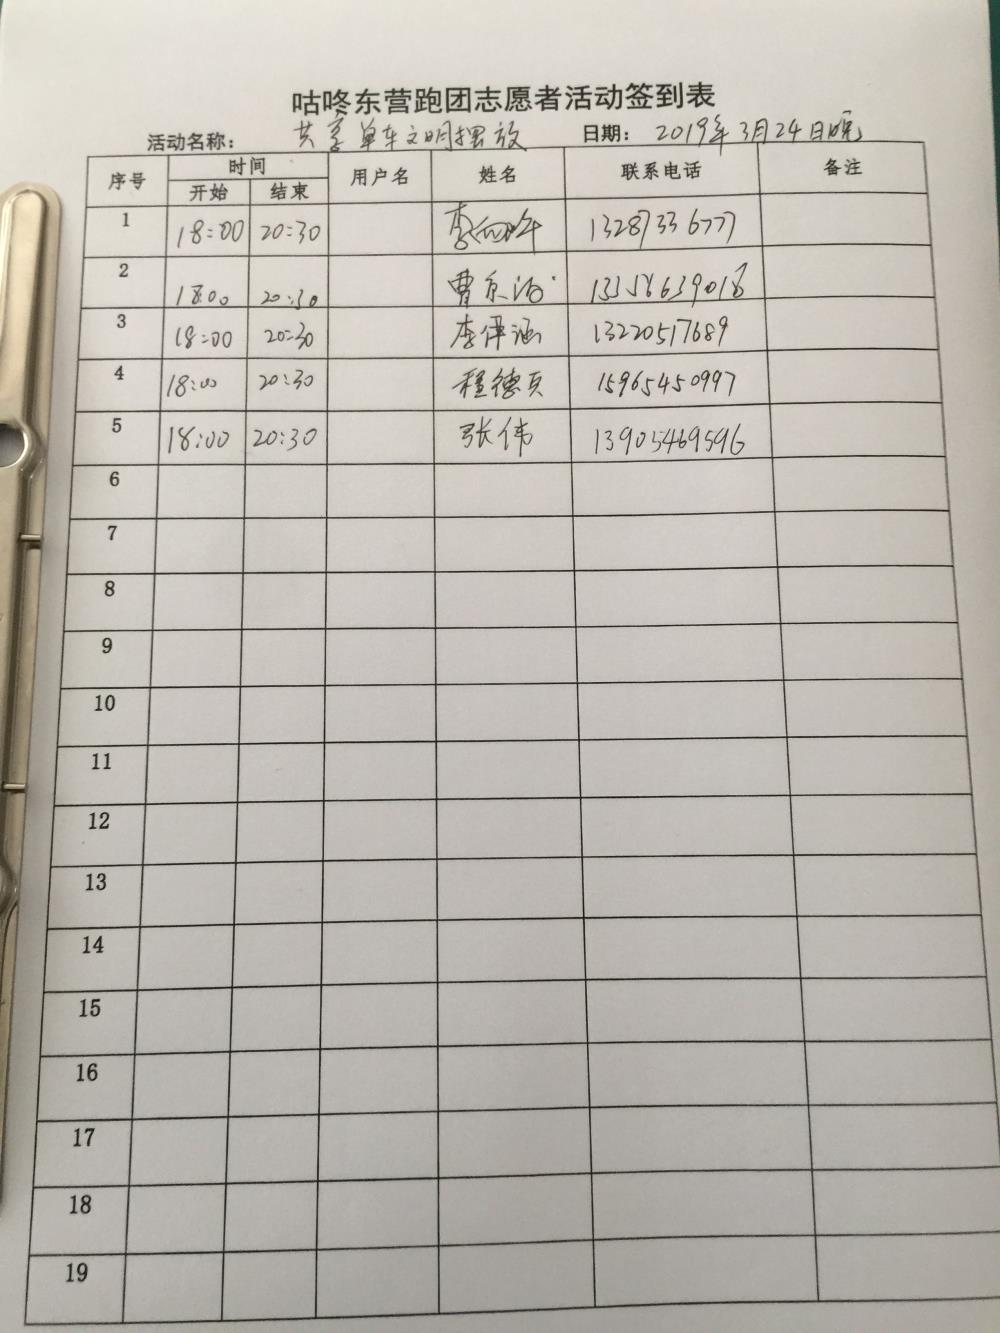 咕咚东营跑团志愿者活动签到表
活动名称： 共享单车文明摆放 日期： 2019年3月24日晚
序号 时间 用户名 姓名 联系电话 备注
开始 结束
1 18:00 20:30 李 13287336777
2 18:00 20:30 曹 13356639018
3 18:00 20:30 李 涵 13220517689
4 18:00 20:30 程德贞 15965450997
5 18:00 20:30 张伟 13905469596
6
7
8
9
10
11
12
13
14
15
16
17
18
19